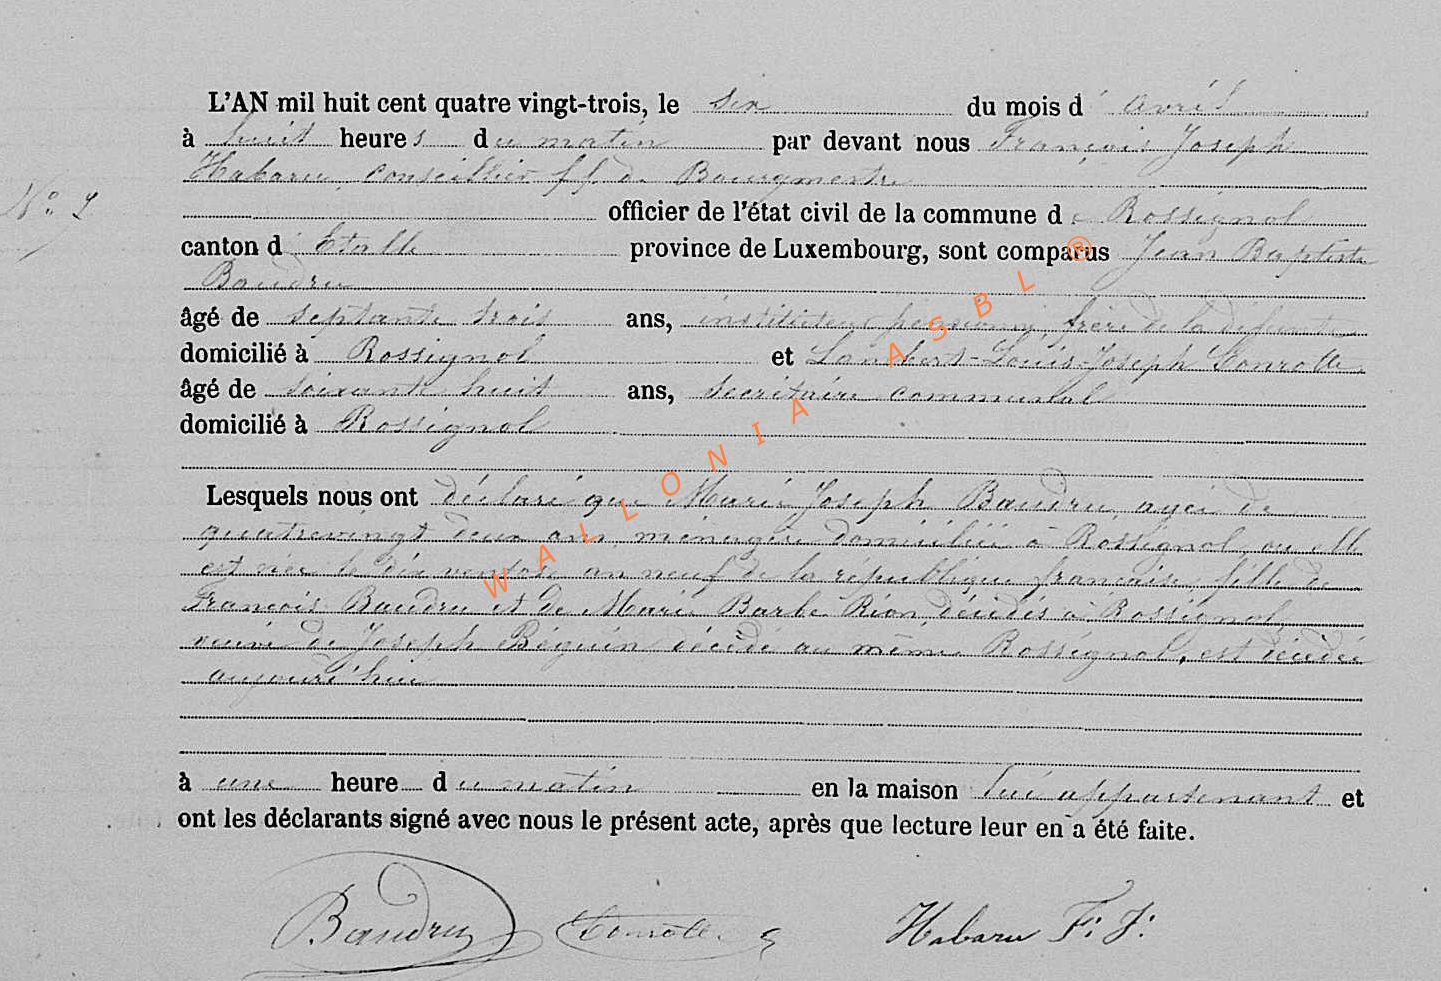 L'AN mil huit cent quatre vingt-trois, le six du mois d'avril
à huit heures du matin par devant nous François Joseph
Habaru, conseiller ff. de Bourgmestre
N° 9
officier de l'état civil de la commune de Rossignol
canton d'Etalle province de Luxembourg, sont comparus Jean Baptiste
Baudru
âgé de septante trois ans, instituteur pensionné, frère de la défunte
domicilié à Rossignol et Lambert-Louis-Joseph
âgé de soixante huit ans, secrétaire communal
domicilié à Rossignol
Lesquels nous ont déclaré que Marie Joseph Baudru, agée de
quatrevingt deux ans, ménagère domiciliée à Rossignol, ou elle
est née le dix ventose an neuf de la république française, fille de
François Baudru et de Marie Barbe Rion, décédés à Rossignol,
veuve de Joseph Béguin décédé au même Rossignol, est décédée
aujourd'hui
à une heure du matin en la maison lui appartenant et
ont les déclarants signé avec nous le présent acte, après que lecture leur en a été faite.
Baudru Habaru F: J:
WALLONIA ASBL ®